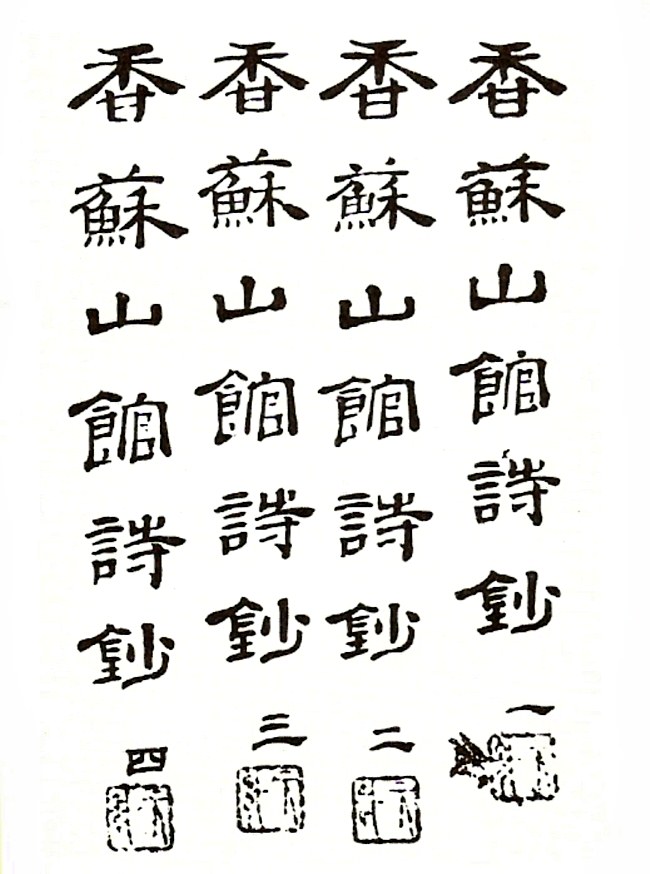 香蘇山館詩鈔 一
香蘇山館詩鈔 二
香蘇山館詩鈔 三
香蘇山館詩鈔 四